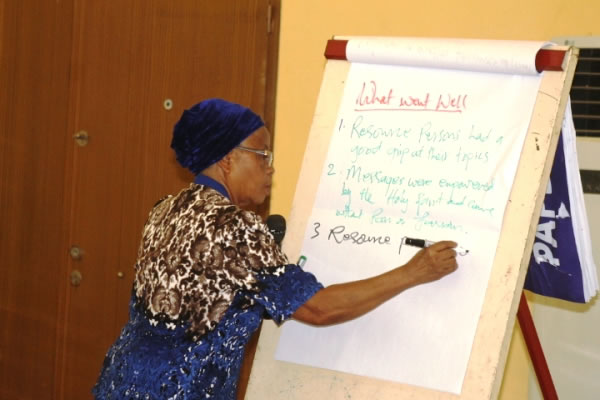 What went Well
1. Resource Persons had a
good grip of their topics
2. Messages were empowered
by the Holy
3 Resource p
PAP